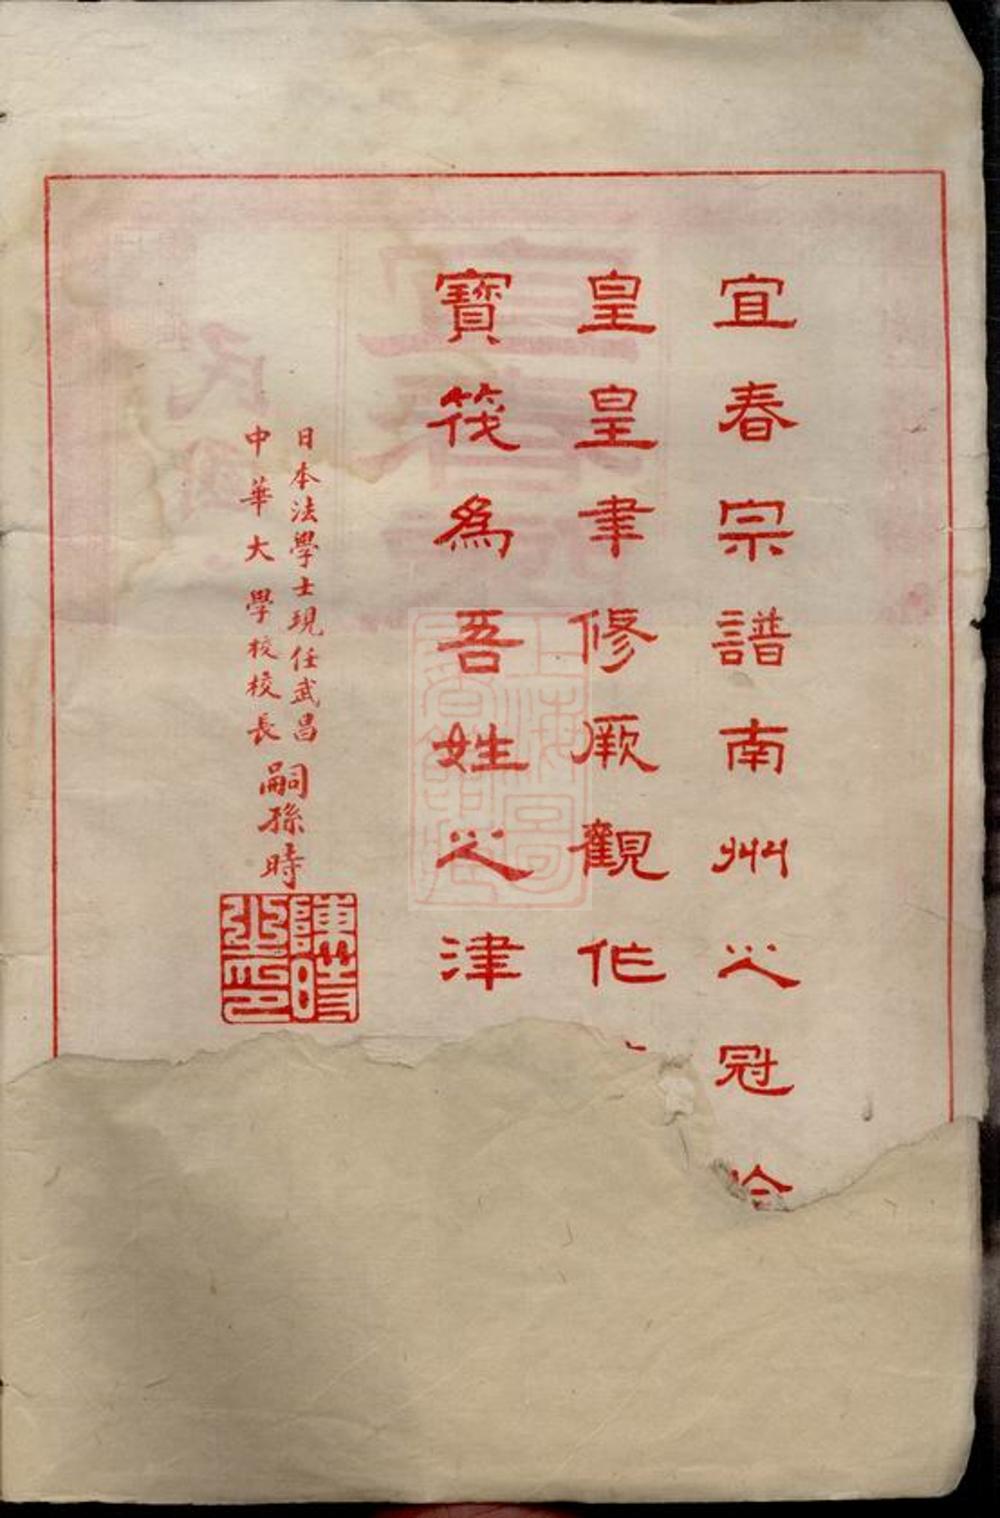 宜春宗譜南州之冠
皇皇聿修厥觀作
寶筏為吾姓之津
日本法學士現任武昌
中華大學校校長
嗣孫時
陳時之印